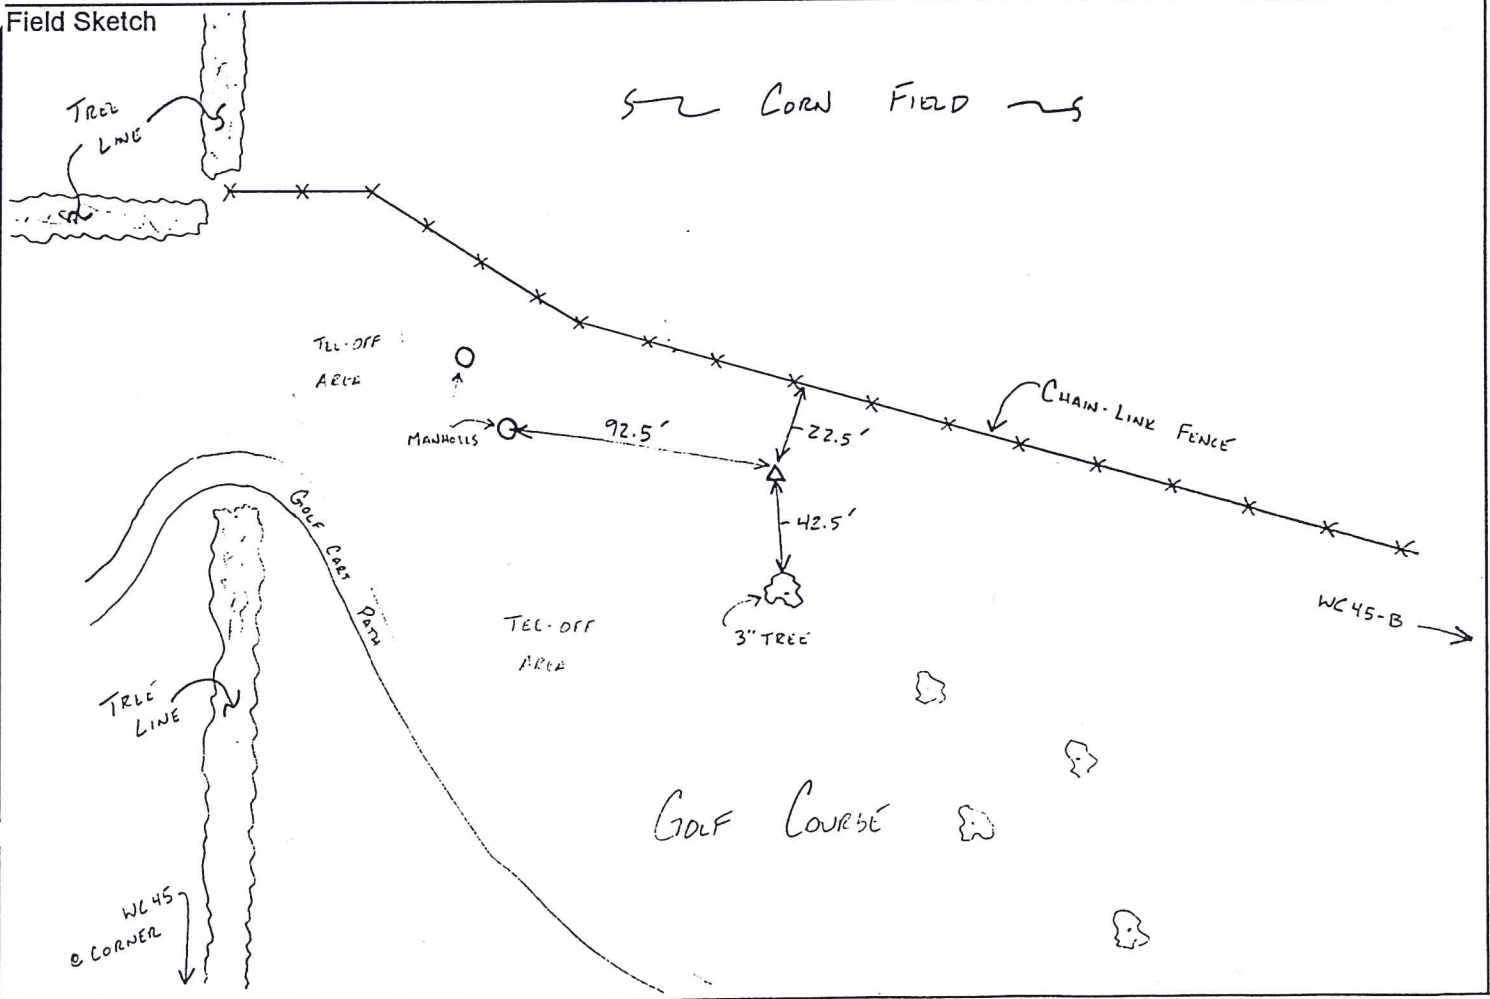 Field Sketch
TREE
LINE
CORN FIELD
TEE-OFF
AREA
MANHOLES
92.5'
22.5'
CHAIN-LINK FENCE
GOLF CART PATH
42.5'
3" TREE
WC45-B
TEE-OFF
AREA
TREE
LINE
GOLF COURSE
WC45
@ CORNER